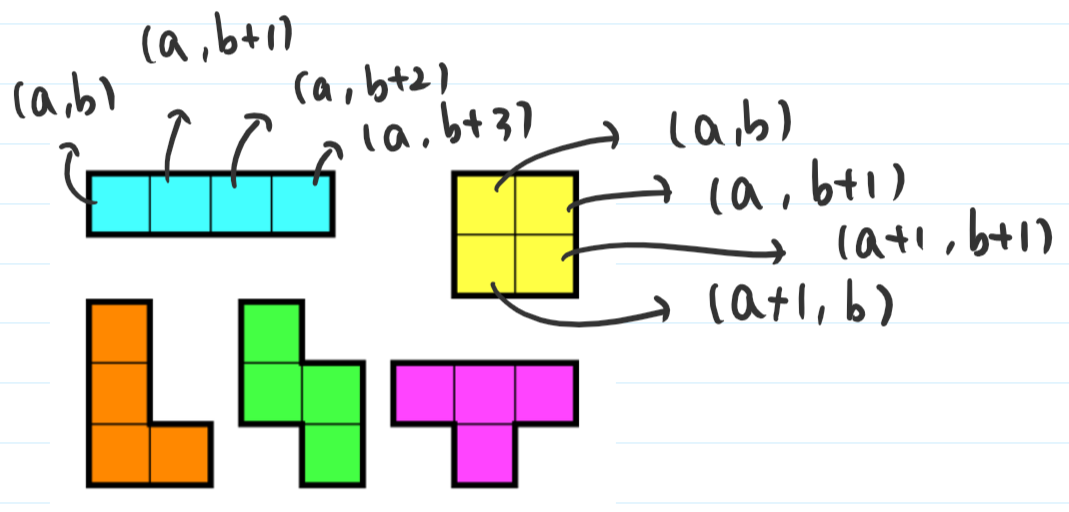 (a,b+1)
(a,b)
(a,b+2)
(a,b+3)
(a,b)
(a,b+1)
(a+1,b+1)
(a+1,b)